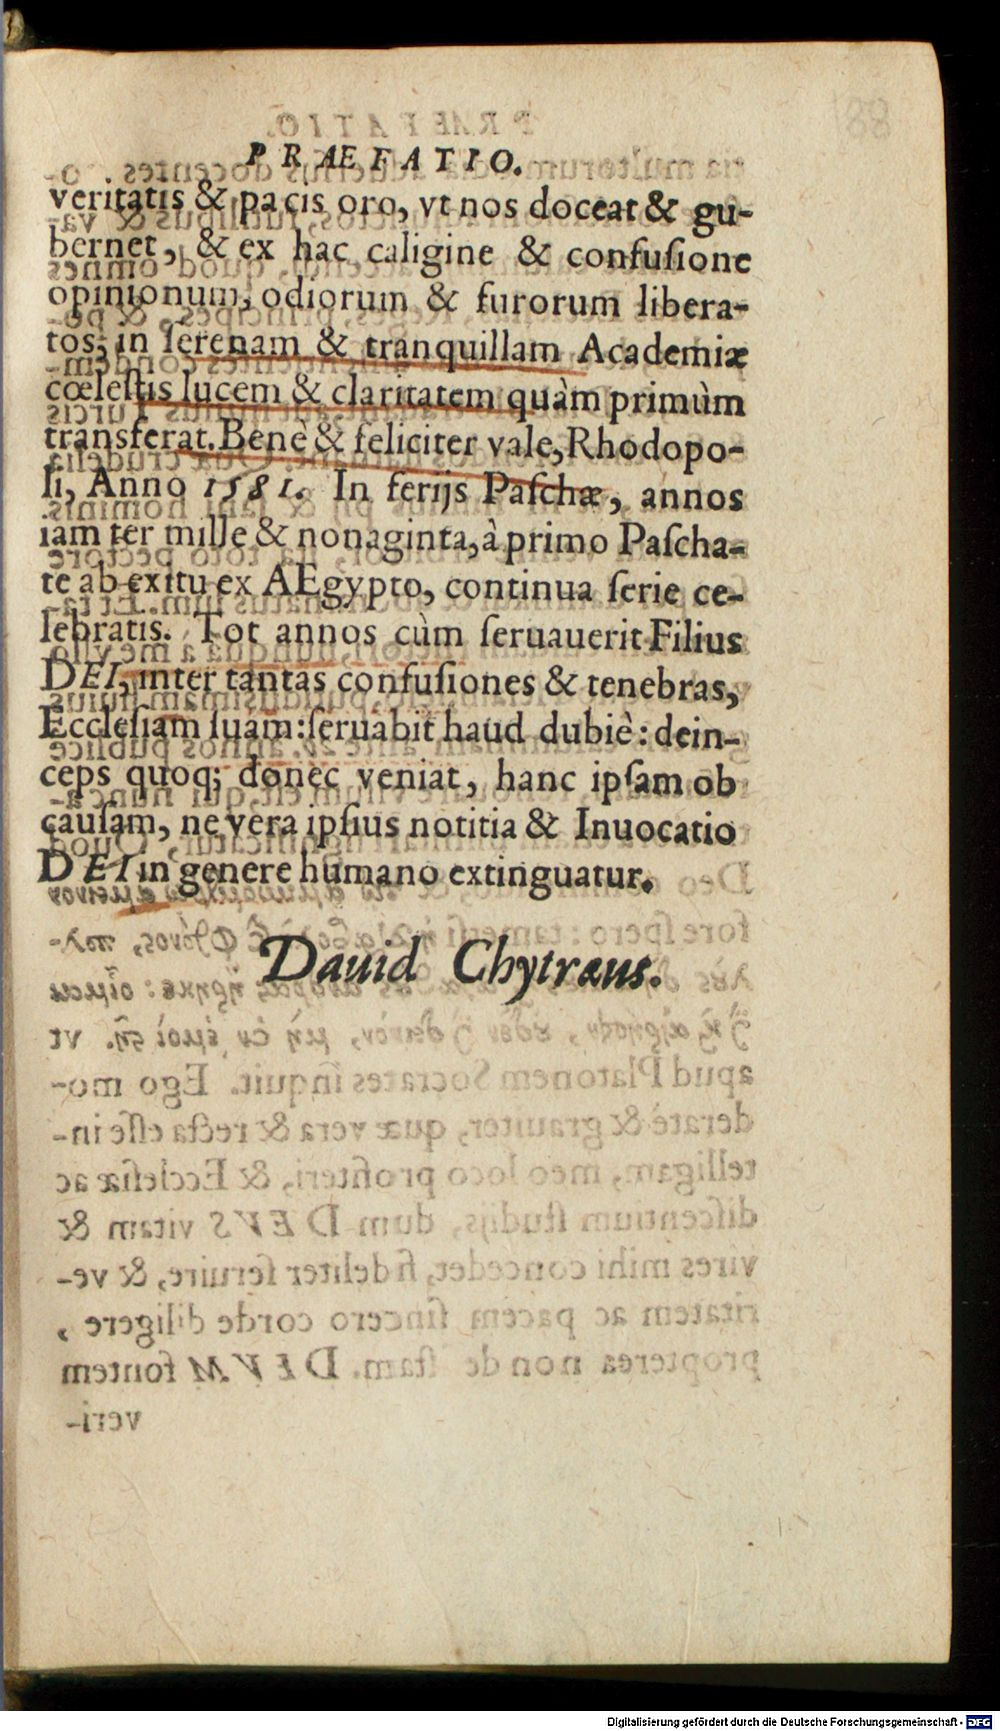 188
PRAEFATIO.
veritatis & pacis oro, vt nos doceat & gu-
bernet, & ex hac caligine & confuſione
opinionum, odiorum & furorum libera-
tos, in ſerenam & tranquillam Academiæ
cœleſtis lucem & claritatem quàm primùm
transferat. Benè & feliciter vale, Rhodopo-
li, Anno 1581. In ferijs Paſchæ, annos
iam ter mille & nonaginta, à primo Paſcha-
te ab exitu ex AEgypto, continua ſerie ce-
lebratis. Tot annos cùm ſeruauerit Filius
DEI, inter tantas confuſiones & tenebras,
Eccleſiam ſuam: ſeruabit haud dubiè: dein-
ceps quoq; donec veniat, hanc ipſam ob
cauſam, ne vera ipſius notitia & Inuocatio
DEI in genere humano extinguatur.
Dauid Chytræus.
Digitalisierung gefördert durch die Deutsche Forschungsgemeinschaft - DFG